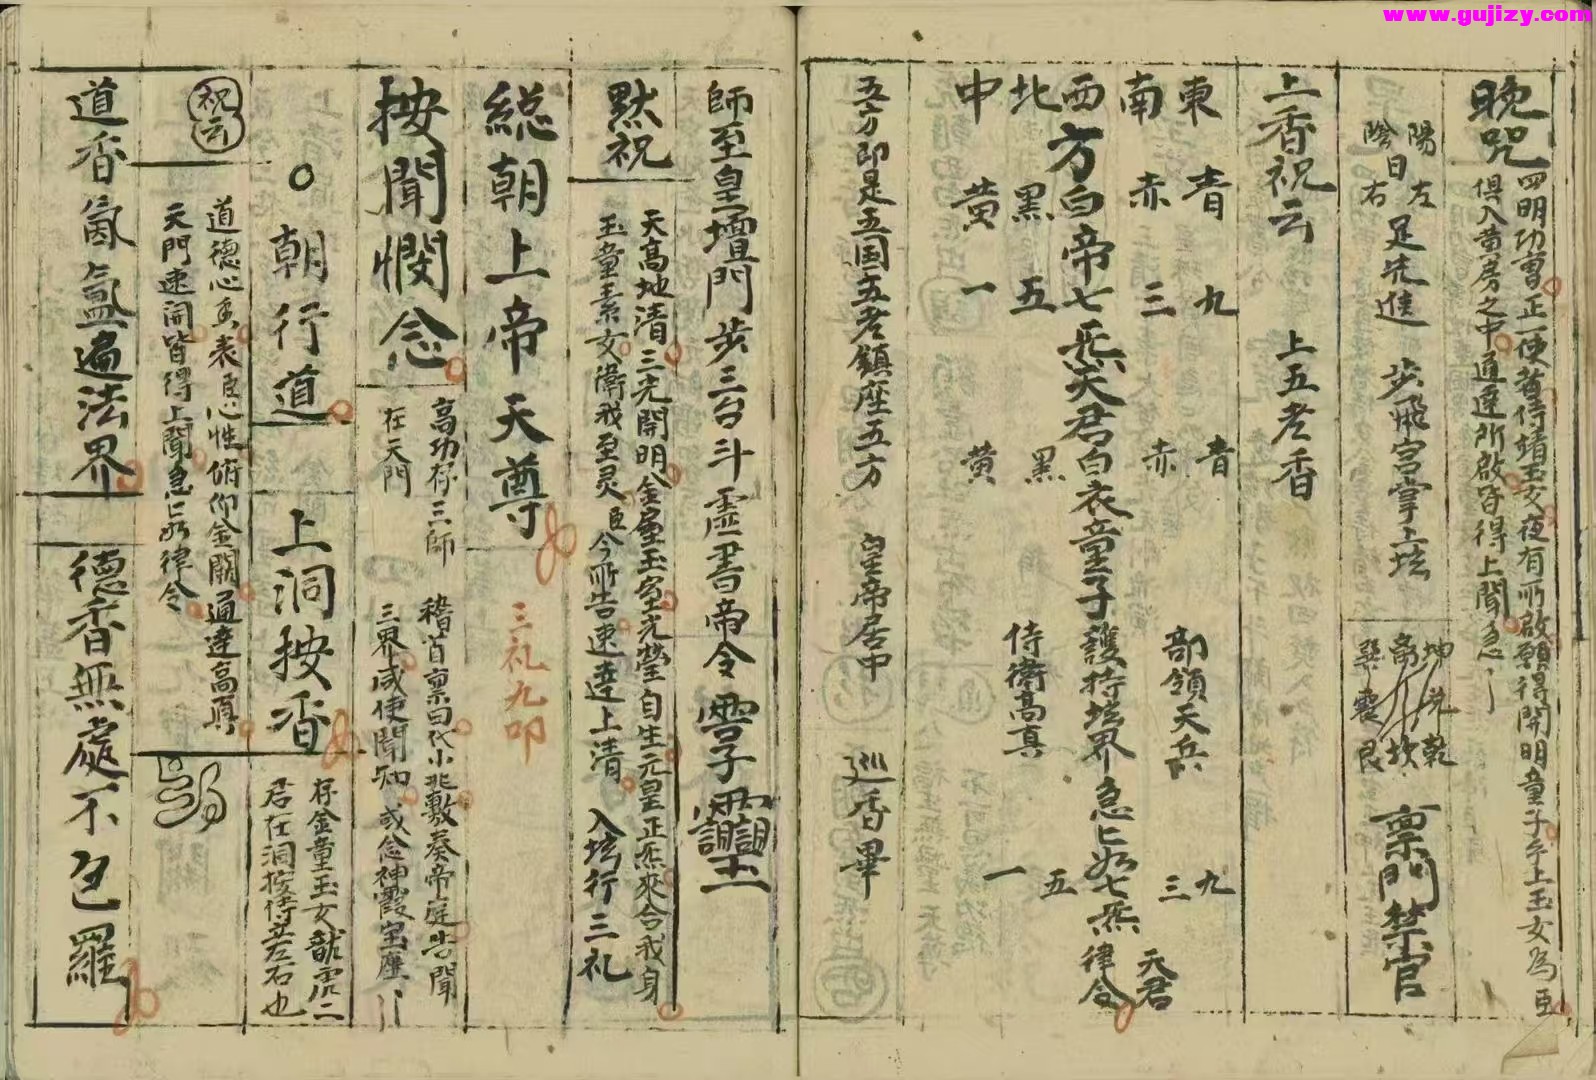 www.gujizy.com
晚咒
四明功曹正一使者侍靖玉女夜有所啟願得開明童子上玉女為臣
俱入黄房之中通達所啟皆得上聞急〻
陽 左
日 足先進 步飛宫掌上坛
陰 右
坤 兑 乾
离 坎
巽 震 艮
禀門禁官
上香祝云 上五老香
東 青 九 青 部領天兵 九
南 赤 三 赤 三 天君
西方白帝七炁天君白衣童子護持坛界急〻如七炁律令
北 黑 五 黑 侍衛高真 五
中 黄 一 黄 一
五方即是五国五老鎮座五方 皇帝居中 巡香畢
師至皇壇門步三台斗虚書帝令
默祝
天高地清三光開明金室玉室光瑩自生元皇正炁來合我身
玉童素女衛我至灵臣今所告速達上清 入坛行三礼
総朝上帝天尊 三礼九叩
按聞憫念
高功存三師
在天門
稽首禀曰代小兆敷奏帝庭告聞
三界咸使聞知 或念神霞宝座〻
朝行道 上洞按香
存金童玉女龍虎二
君在洞按侍立左右也
祝云
道德心香表臣心性俯仰金闕通達高真
天門速開皆得上聞急〻如律令
道香氤氲遍法界 德香無處不包羅